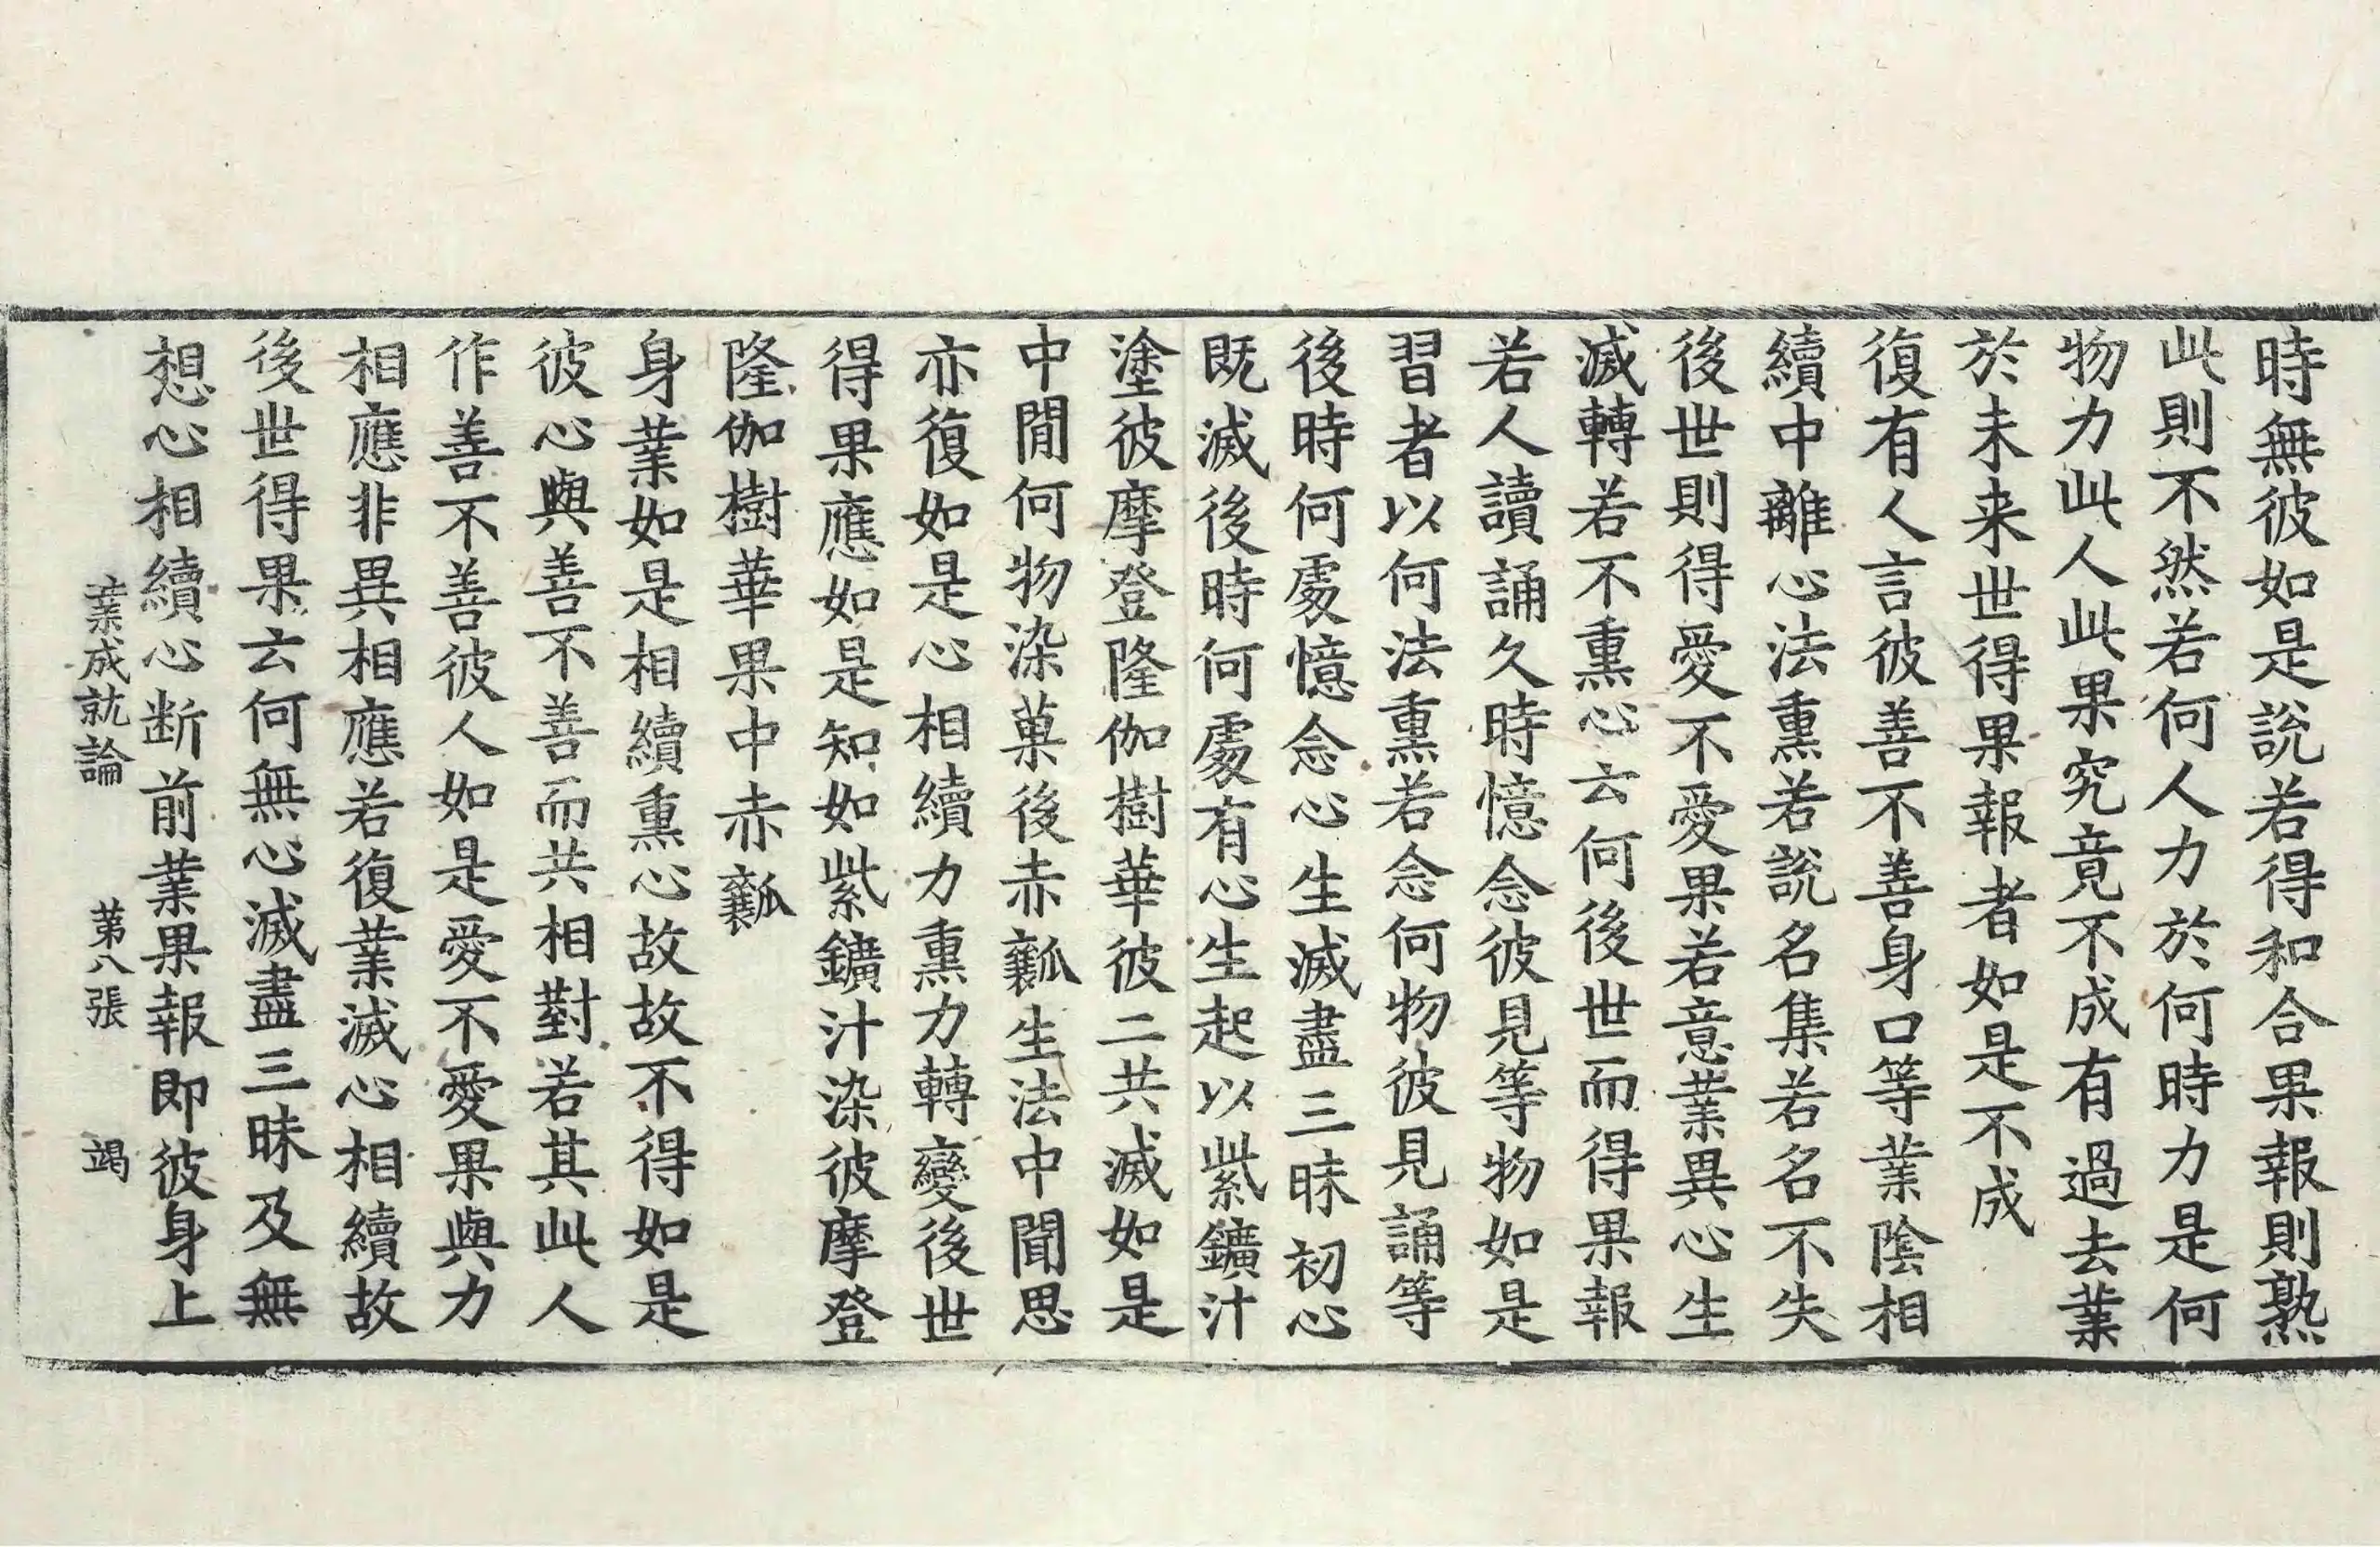 時無彼如是説若得和合果報則熟
此則不然若何人力於何時力是何
物力此人此果究竟不成有過去業
於未来世得果報者如是不成
復有人言彼善不善身口等業陰相
續中離心法熏若説名集若名不失
後世則得愛不愛果若意業異心生
滅轉若不熏心云何後世而得果報
若人讀誦久時憶念彼見等物如是
習者以何法熏若念何物彼見誦等
後時何處憶念心生滅盡三昧初心
既滅後時何處有心生起以紫鑛汁
塗彼摩登隆伽樹華彼二共滅如是
中閒何物染菓後赤瓤生法中聞思
亦復如是心相續力熏力轉變後世
得果應如是知如紫鑛汁染彼摩登
隆伽樹華果中赤瓤
身業如是相續熏心故故不得如是
彼心與善不善而共相對若其此人
作善不善彼人如是愛不愛果與力
相應非異相應若復業滅心相續故
後世得果云何無心滅盡三昧及無
想心相續心断前業果報即彼身上
業成就論 苐八張 竭